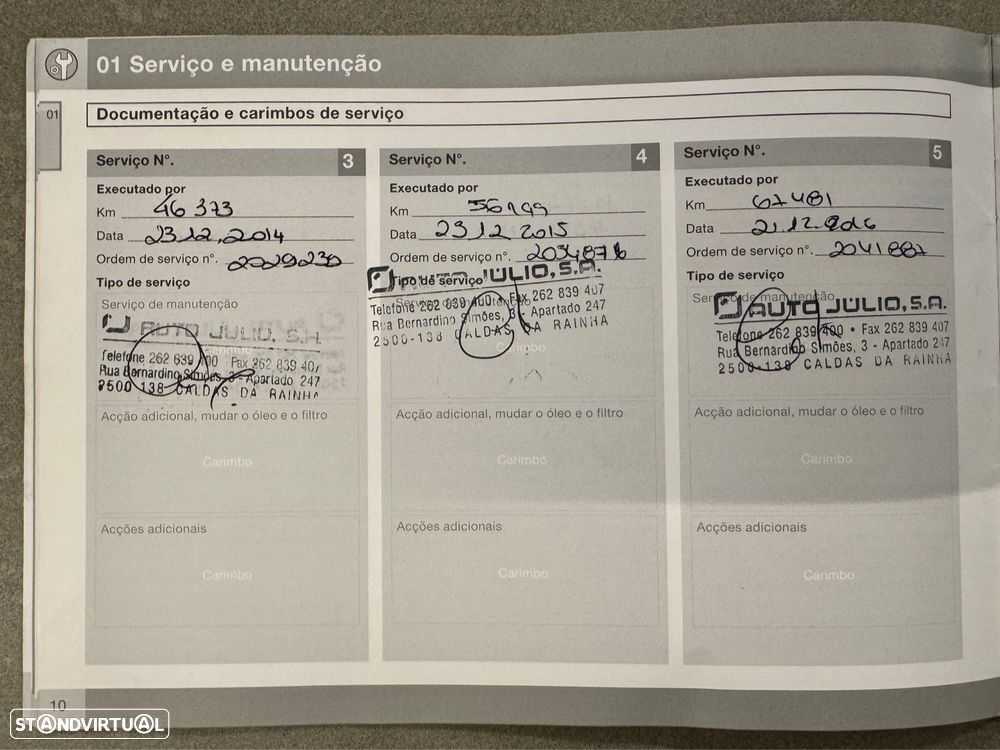 01 Serviço e manutenção
01
Documentação e carimbos de serviço
Serviço Nº. 3
Executado por
Km 46 373
Data 23.12.2014
Ordem de serviço nº. 2029230
Tipo de serviço
Serviço de manutenção
AUTO JULIO, S.A.
Telefone 262 839 400 Fax 262 839 407
Rua Bernardino Simões, 3 - Apartado 247
2500-138 CALDAS DA RAINHA
Acção adicional, mudar o óleo e o filtro
Carimbo
Acções adicionais
Carimbo
Serviço Nº. 4
Executado por
Km 56199
Data 23 12 2015
Ordem de serviço nº.
Tipo de serviço
AUTO JULIO, S.A.
Telefone 262 839 400 • Fax 262 839 407
Rua Bernardino Simões, 3 - Apartado 247
2500-138 CALDAS DA RAINHA
Carimbo
Acção adicional, mudar o óleo e o filtro
Carimbo
Acções adicionais
Carimbo
Serviço Nº. 5
Executado por
Km 67481
Data 21.12.2016
Ordem de serviço nº. 2041887
Tipo de serviço
Serviço de manutenção
AUTO JULIO, S.A.
Telefone 262 839 400 • Fax 262 839 407
Rua Bernardino Simões, 3 - Apartado 247
2500-138 CALDAS DA RAINHA
Acção adicional, mudar o óleo e o filtro
Carimbo
Acções adicionais
Carimbo
10
STANDVIRTUAL